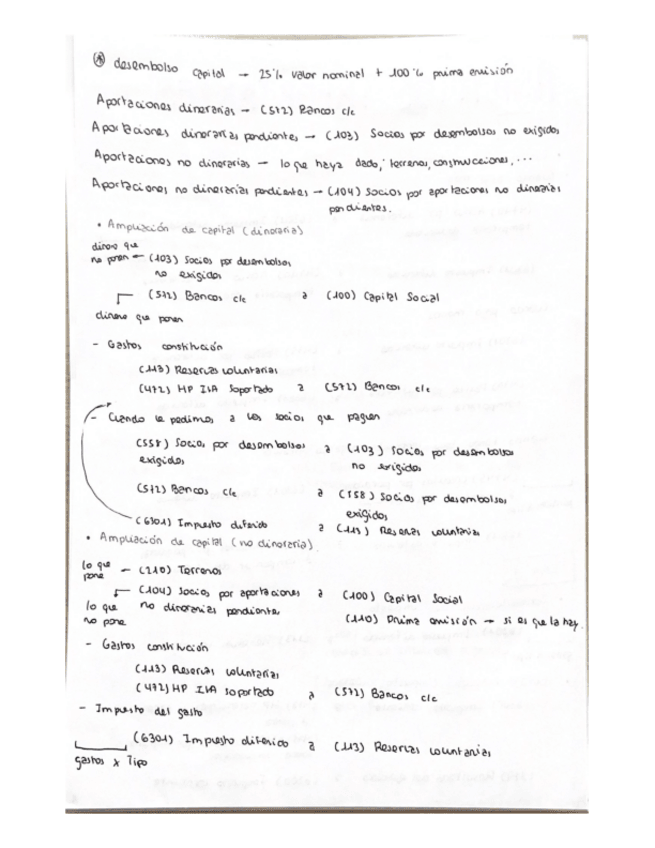 (*) desembolso capital → 25% valor nominal + 100% prima emisión
Aportaciones dinerarias → (572) Bancos c/c
Aportaciones dinerarias pendientes → (103) Socios por desembolsos no exigidos
Aportaciones no dinerarias → lo que haya dado, terrenos, construcciones, ...
Aportaciones no dinerarias pendientes → (104) Socios por aportaciones no dinerarias
pendientes.
• Ampliación de capital (dineraria)
dinero que
no ponen ← (103) Socios por desembolsos
no exigidos
(572) Bancos c/c a (100) Capital Social
dinero que ponen
- Gastos constitución
(113) Reservas voluntarias
(472) HP IVA soportado a (572) Bancos c/c
- Cuando le pedimos a los socios que paguen
(558) Socios por desembolsos a (103) Socios por desembolsos
exigidos no exigidos
(572) Bancos c/c a (558) Socios por desembolsos
exigidos
(6301) Impuesto diferido a (113) Reservas voluntarias
• Ampliación de capital (no dineraria).
lo que
pone — (210) Terrenos
(104) Socios por aportaciones a (100) Capital Social
lo que no dinerarias pendiente
no pone (110) Prima emisión → si es que la hay.
- Gastos constitución
(113) Reservas voluntarias
(472) HP IVA soportado a (572) Bancos c/c
- Impuesto del gasto
(6301) Impuesto diferido a (113) Reservas voluntarias
gastos x Tipo